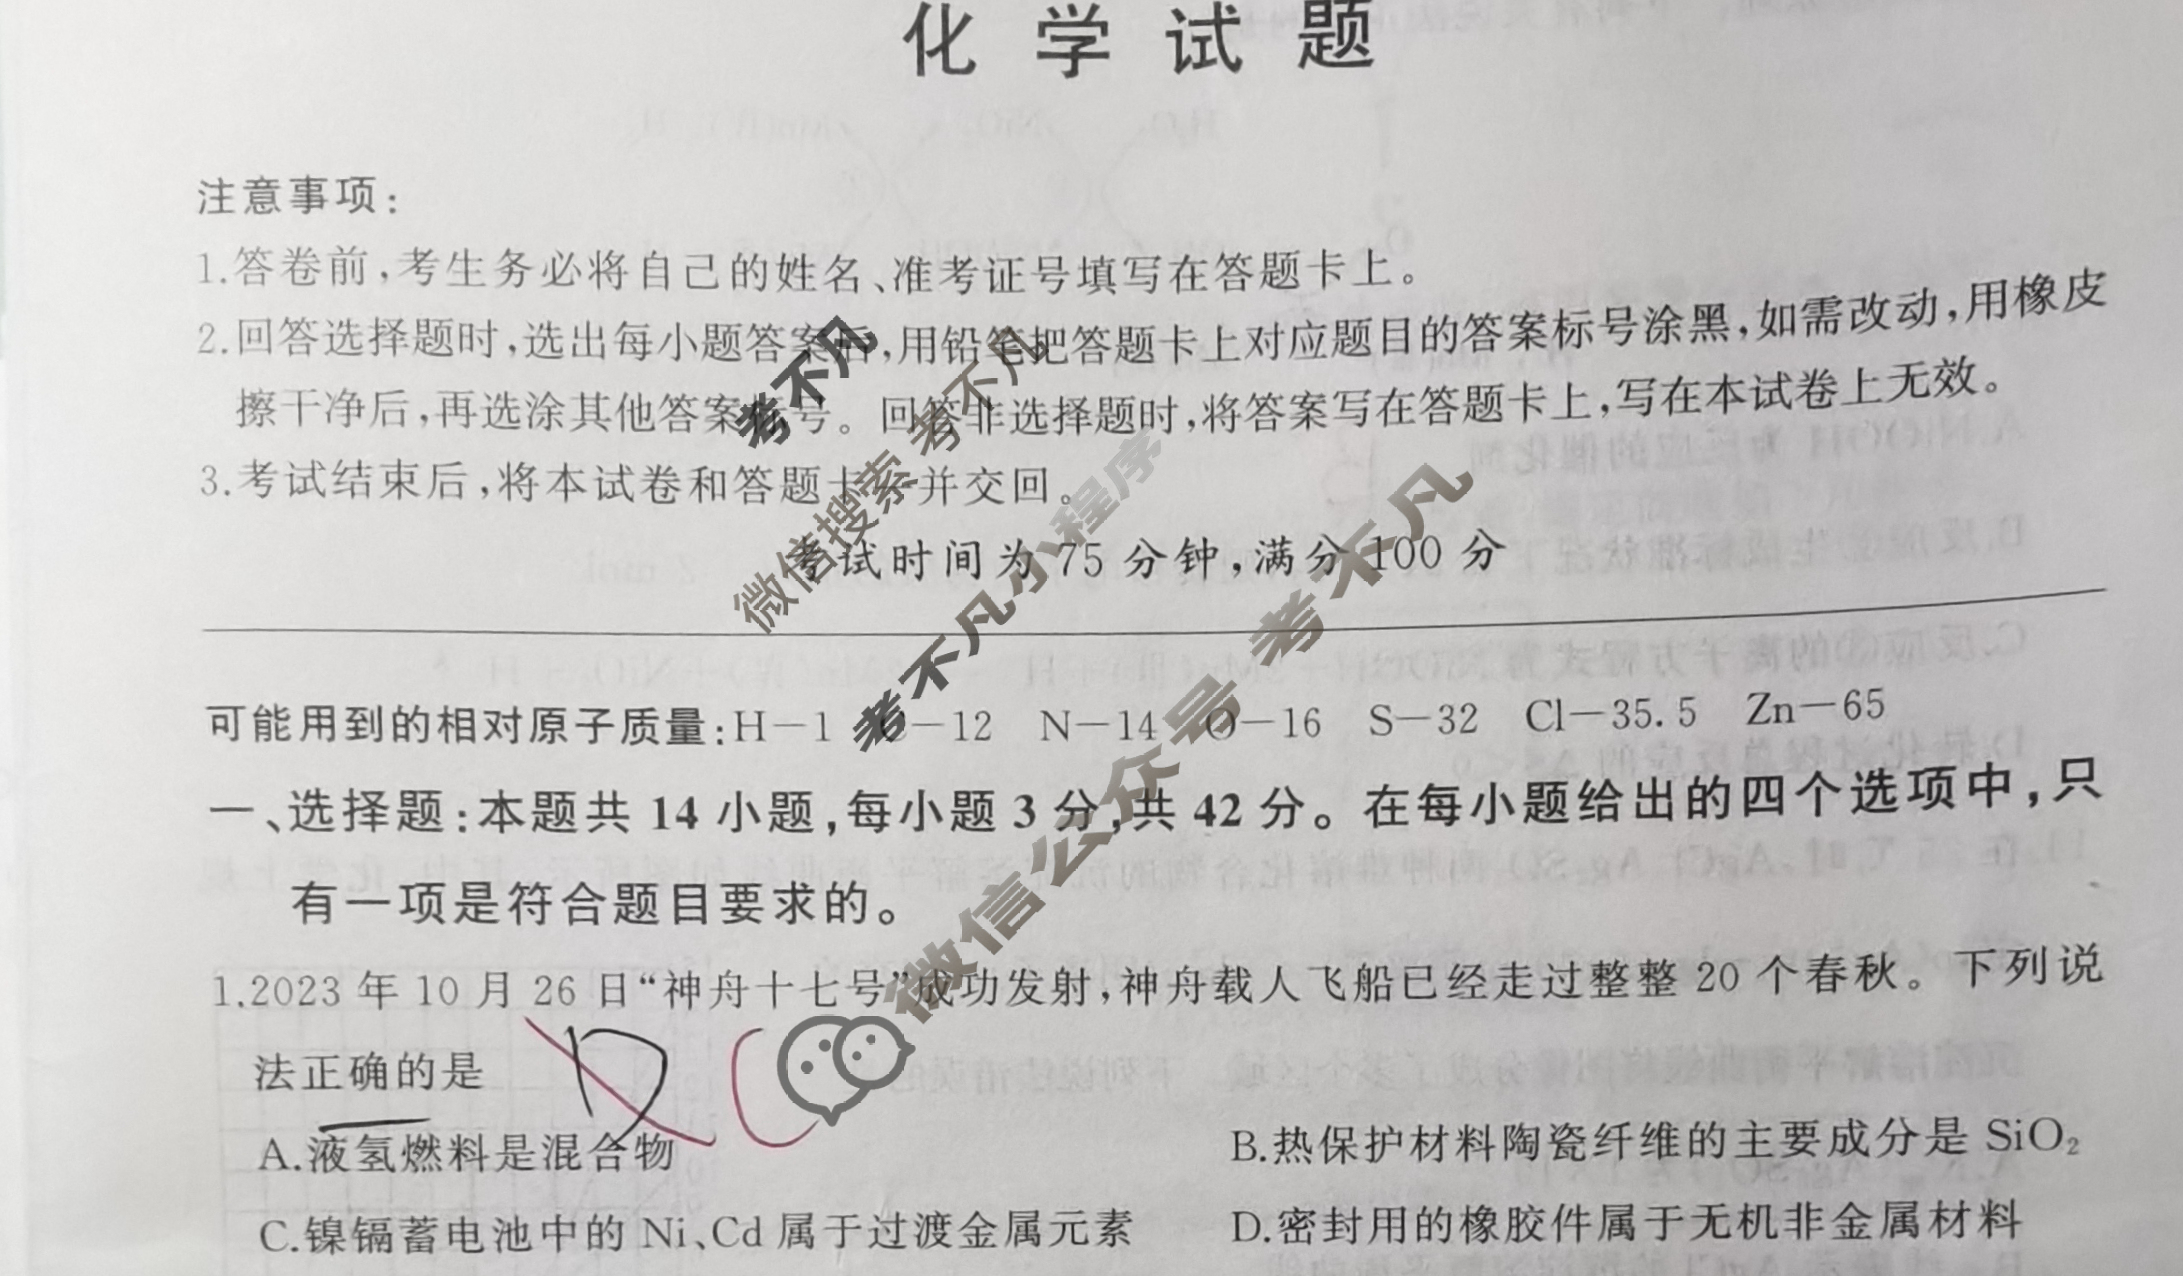 化学试题
注意事项：
1.答卷前,考生务必将自己的姓名、准考证号填写在答题卡上。
2.回答选择题时,选出每小题答案后,用铅笔把答题卡上对应题目的答案标号涂黑,如需改动,用橡皮
擦干净后,再选涂其他答案标号。回答非选择题时,将答案写在答题卡上,写在本试卷上无效。
3.考试结束后,将本试卷和答题卡一并交回。
考试时间为75分钟,满分100分
可能用到的相对原子质量:H—1 C—12 N—14 O—16 S—32 Cl—35.5 Zn—65
一、选择题:本题共14小题,每小题3分,共42分。在每小题给出的四个选项中,只
有一项是符合题目要求的。
1.2023年10月26日“神舟十七号”成功发射,神舟载人飞船已经走过整整20个春秋。下列说
法正确的是
D C
A.液氢燃料是混合物 B.热保护材料陶瓷纤维的主要成分是SiO₂
C.镍镉蓄电池中的Ni、Cd属于过渡金属元素 D.密封用的橡胶件属于无机非金属材料
考不凡
微信搜索 考不凡
考不凡小程序
微信公众号 考不凡